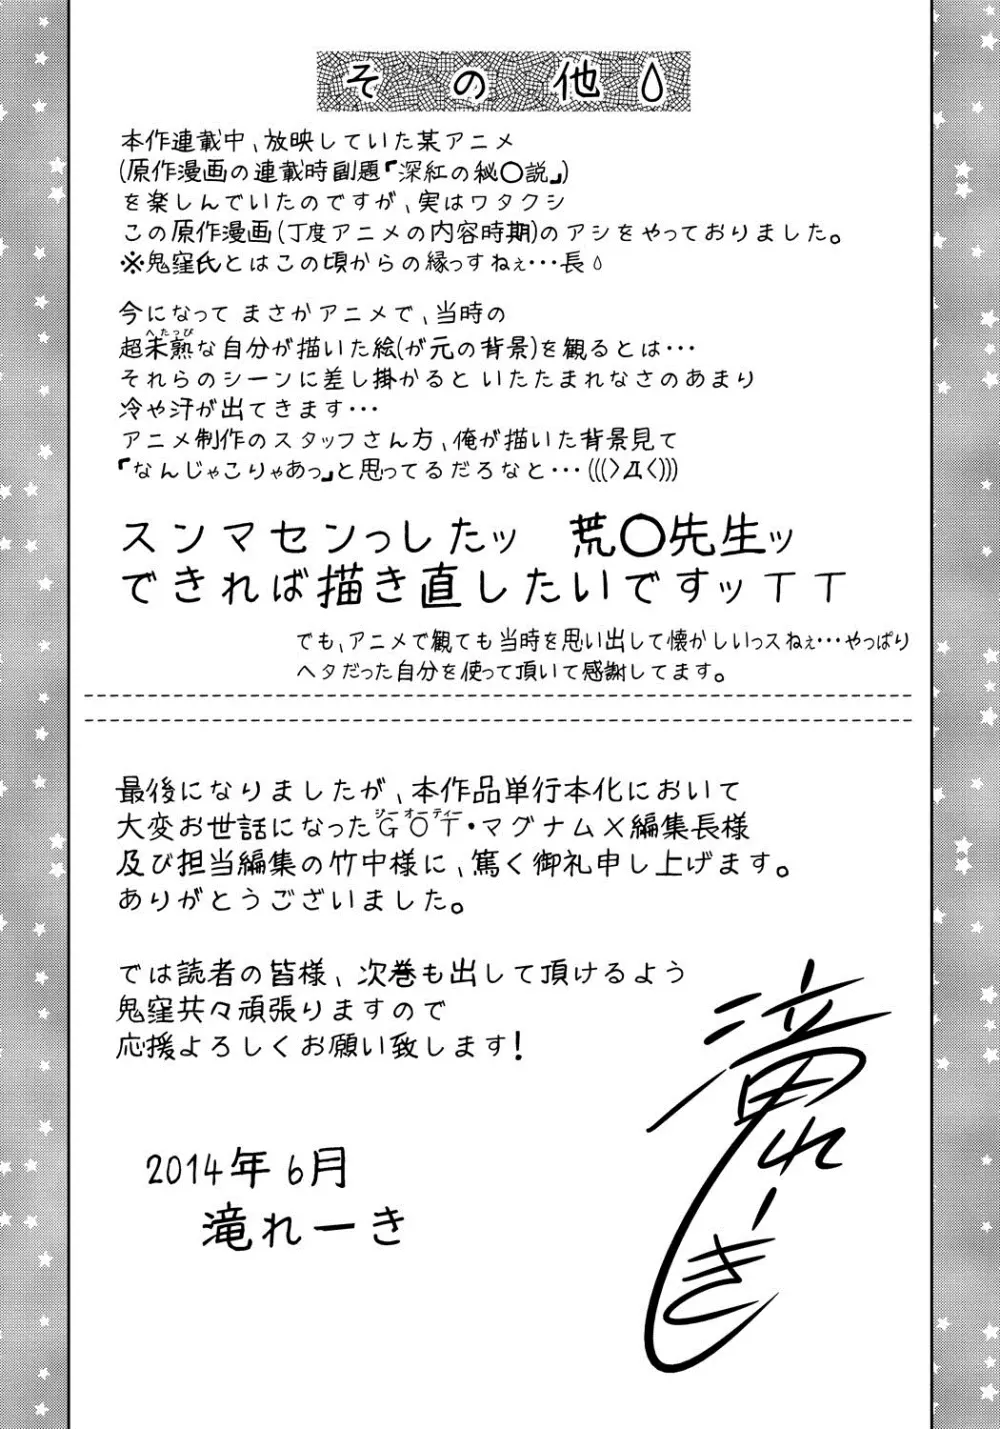 その他
本作連載中、放映していた某アニメ
(原作漫画の連載時副題『深紅の秘〇説』)
を楽しんでいたのですが、実はワタクシ
この原作漫画(丁度アニメの内容時期)のアシをやっておりました。
※鬼窪氏とはこの頃からの縁っすねぇ…長
今になって まさかアニメで、当時の
へたっぴ
超未熟な自分が描いた絵(が元の背景)を観るとは…
それらのシーンに差し掛かると いたたまれなさのあまり
冷や汗が出てきます…
アニメ制作のスタッフさん方、俺が描いた背景見て
『なんじゃこりゃあっ』と思ってるだろなと…(((>Д<)))
スンマセンっしたッ 荒〇先生ッ
できれば描き直したいですッTT
でも、アニメで観ても当時を思い出して懐かしいっスねぇ…やっぱり
ヘタだった自分を使って頂いて感謝してます。
最後になりましたが、本作品単行本化において
ジーオーティー
大変お世話になったGOT・マグナムX編集長様
及び担当編集の竹中様に、篤く御礼申し上げます。
ありがとうございました。
では読者の皆様、次巻も出して頂けるよう
鬼窪共々頑張りますので
応援よろしくお願い致します!
2014年6月
滝れーき
滝れーき